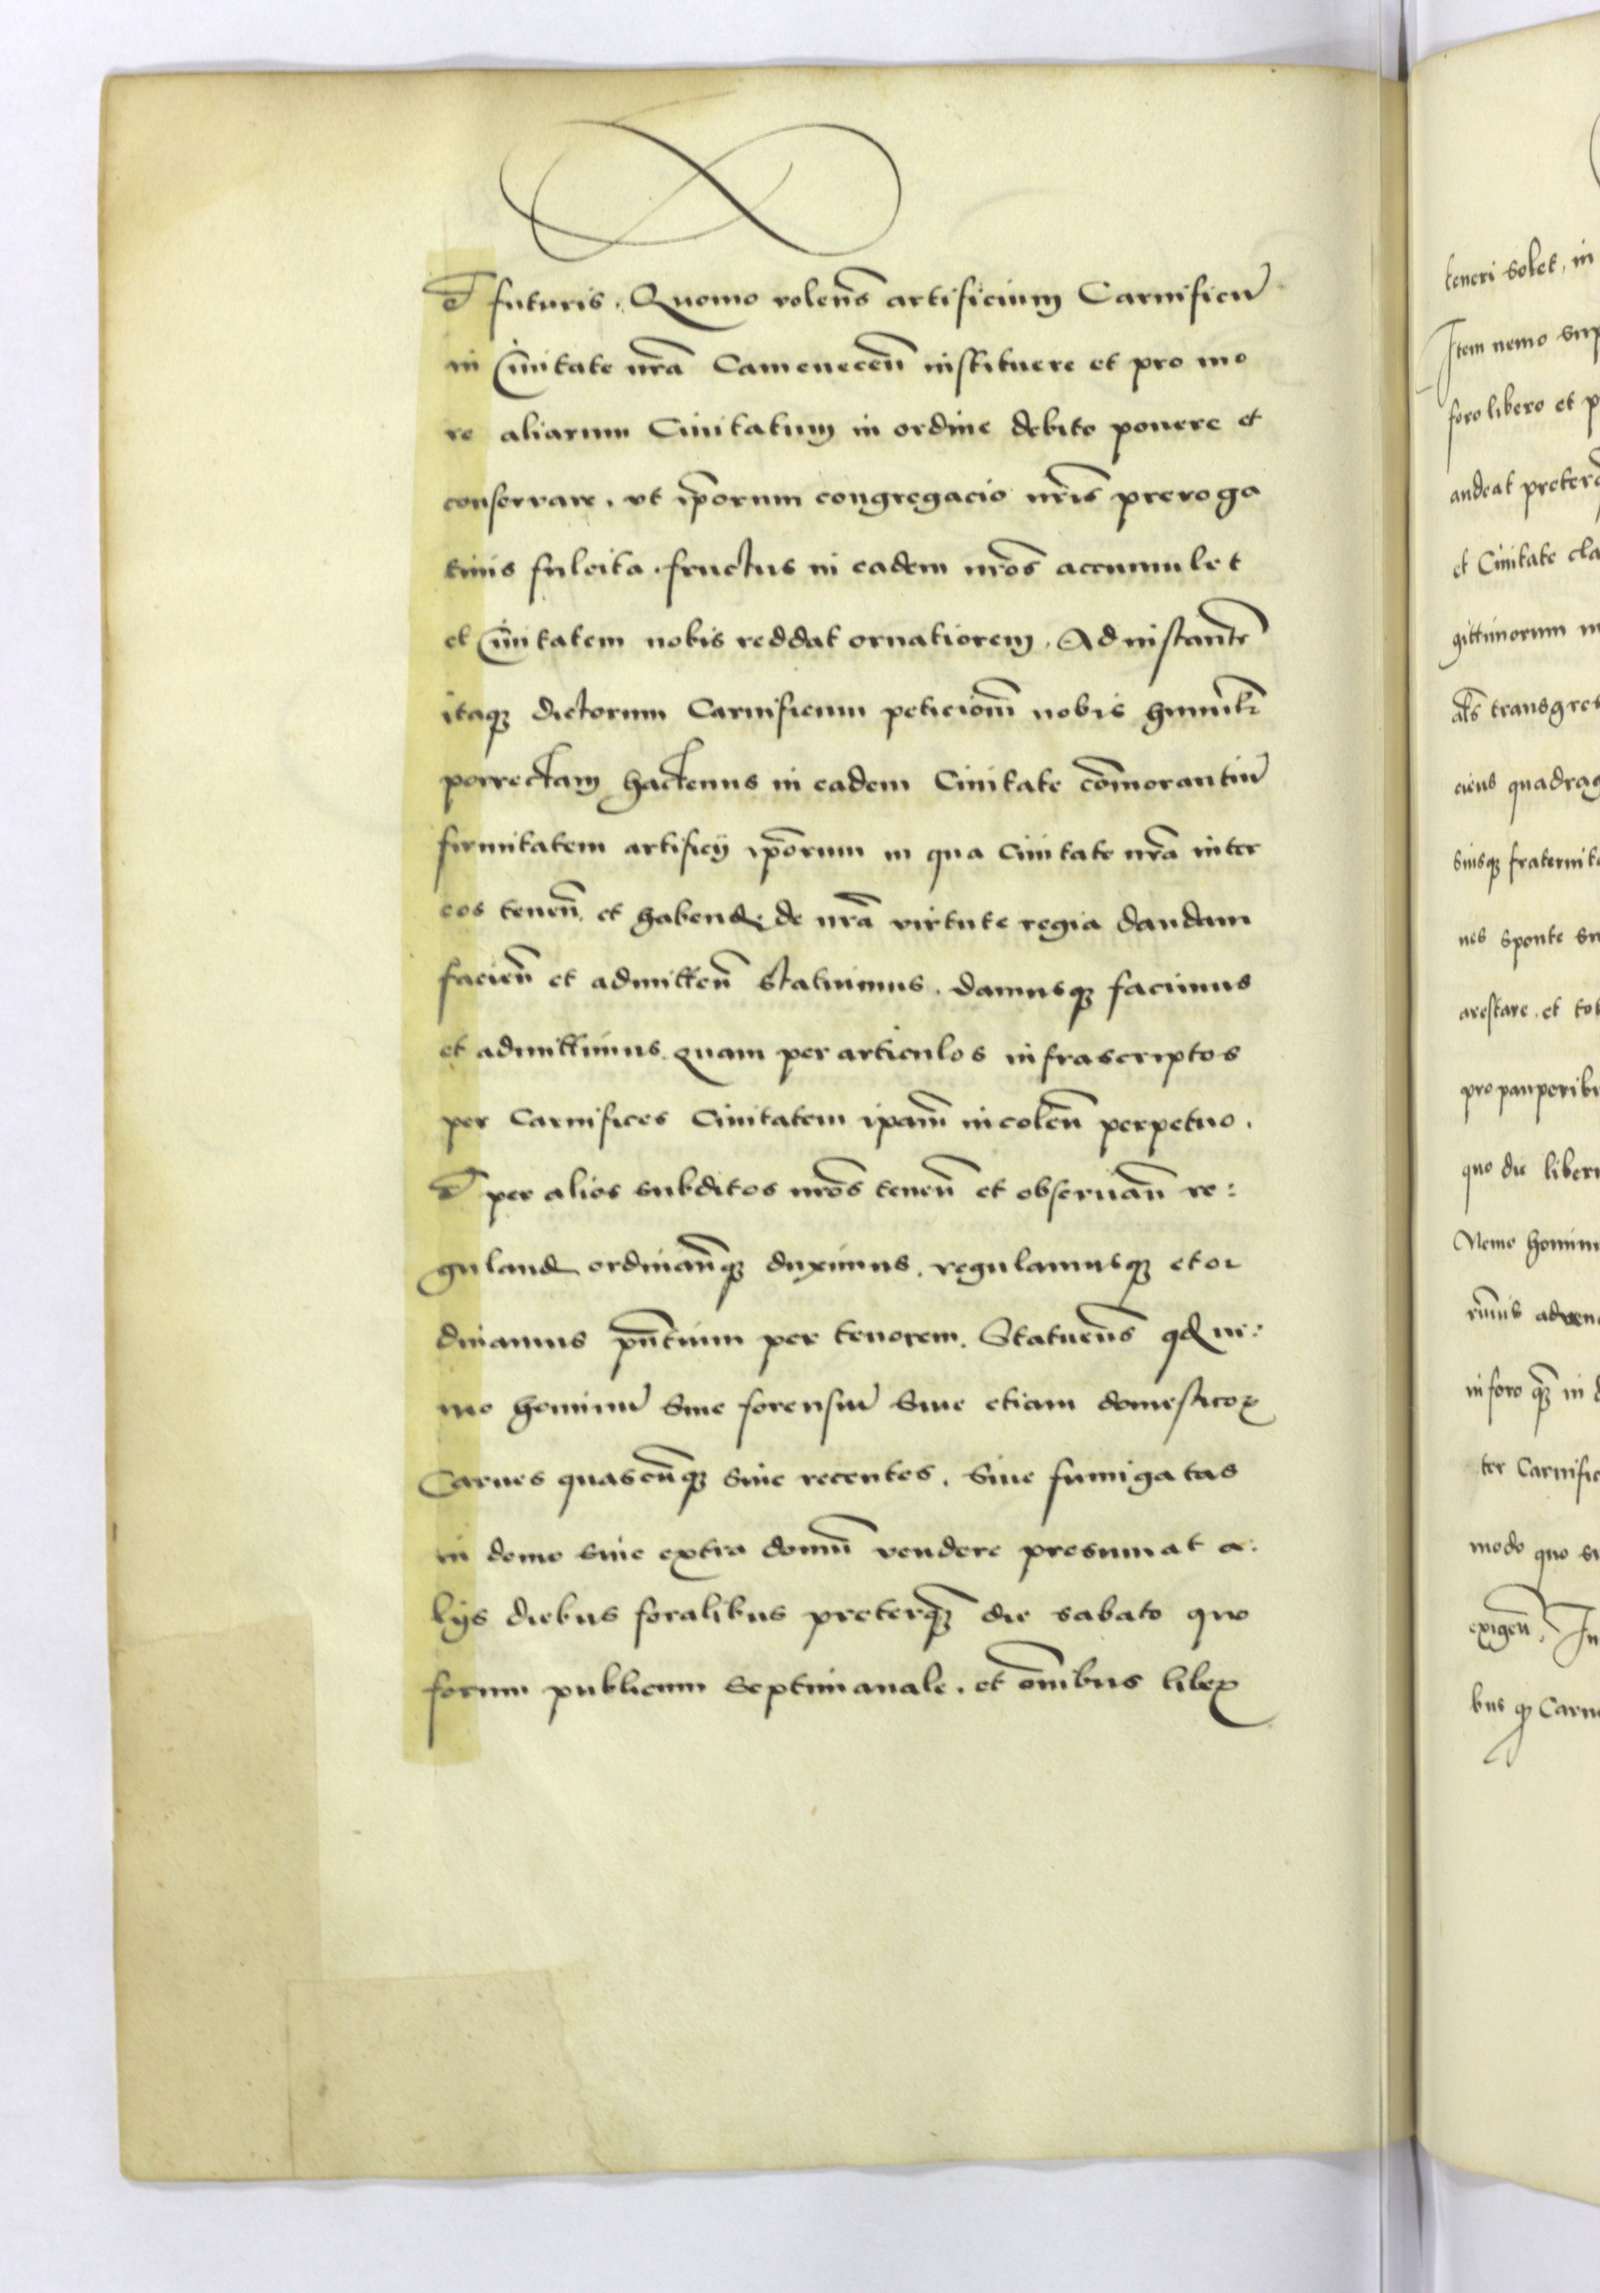 et futuris. Quomo volens̄ artificium Carnificū
in Ciuitate nr̄a Camenecen̄ instituere et pro mo
re aliarum Ciuitatum in ordine debito ponere et
conservare. vt ip̄orum congregacio nr̄is preroga
tiuis fulcita fructus in eadem nr̄os accumulet
et Ciuitatem nobis reddat ornatiorem. Ad instantē
itaqꝫ dictorum Carnificum peticiom̄ nobis humilr̄
porrectam hactenus in eadem Ciuitate com̄orantiū
firmitatem artificij ip̄orum in qua Ciuitate nr̄a inter
eos tenen̄. et habend. de nr̄a virtute regia dandam
facien̄ et admitten̄ statuimus. damusqꝫ facimus
et admittimus. quam per articulos infrascriptos
per Carnifices Ciuitatem ipam̄ incolen̄ perpetuo.
et per alios subditos nr̄os tenen̄ et obseruan̄ re:
guland ordinan̄qꝫ duximus. regulamusqꝫ et or
dinamus pn̄tium per tenorem. Statuens̄ qd ne:
mo hominū siue forensiū siue etiam domesticoꝝ
Carnes quascun̄qꝫ siue recentes. siue fumigatas
in domo siue extra domū vendere presumat a:
lijs diebus foralibus preterqꝫ̄ die sabato quo
forum publicum septimanale. et om̄ibus liberꝝ
teneri solet, in
Item nemo
foro libero et p
audeat preter
et Ciuitate cla
gittimorum
al̄s transgres
quadrag
suisqꝫ fraternita
nes sponte
arestare. et tot
pro pauperibu
quo die liber
Nemo hominu
advend
in foro qꝫ̄ in
ter Carnific
modo quo
exigen̄. In
bus Carn